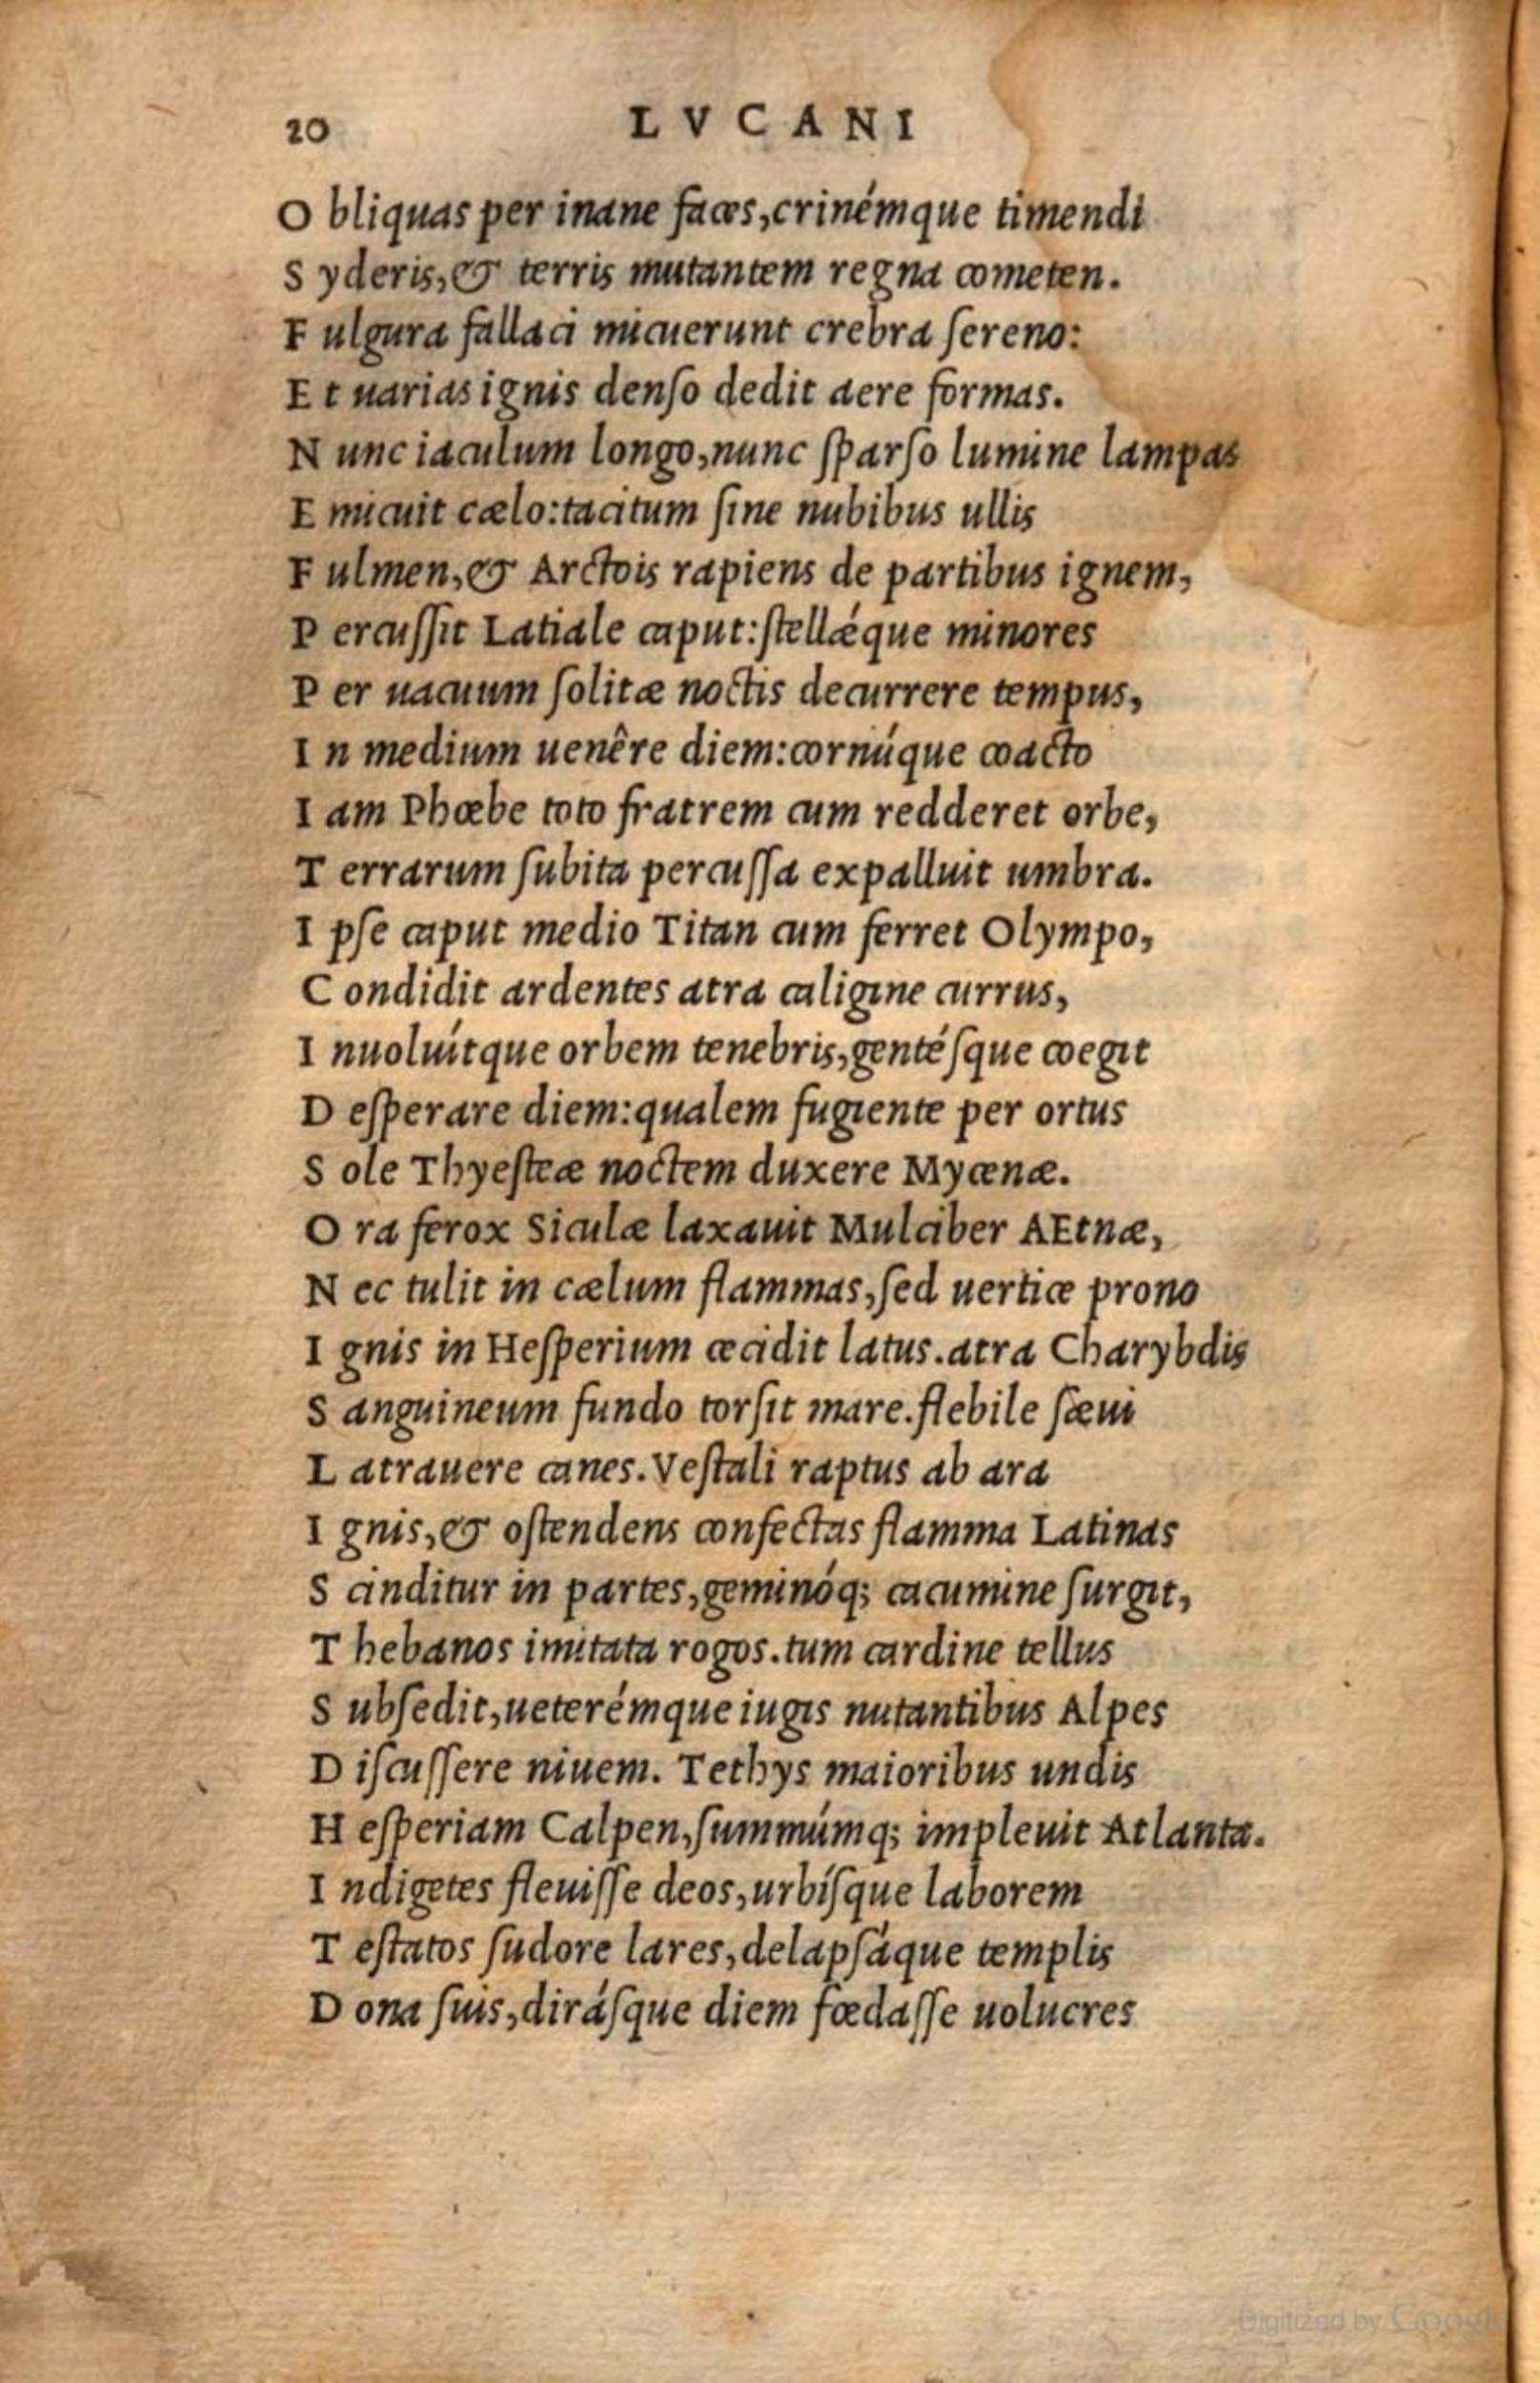 20 LVCANI
O bliquas per inane faces,crinémque timendi
S yderis,& terris mutantem regna cometen.
F ulgura fallaci micuerunt crebra ſereno:
E t uarias ignis denſo dedit aere formas.
N unc iaculum longo,nunc ſparſo lumine lampas
E micuit cælo:tacitum ſine nubibus ullis
F ulmen,& Arctois rapiens de partibus ignem,
P ercuſſit Latiale caput:ſtellǽque minores
P er uacuum ſolitæ noctis decurrere tempus,
I n medium uenêre diem:cornúque coacto
I am Phœbe toto fratrem cum redderet orbe,
T errarum ſubita percuſſa expalluit umbra.
I pſe caput medio Titan cum ferret Olympo,
C ondidit ardentes atra caligine currus,
I nuoluítque orbem tenebris,gentéſque coegit
D eſperare diem:qualem fugiente per ortus
S ole Thyeſteæ noctem duxere Mycenæ.
O ra ferox Siculæ laxauit Mulciber AEtnæ,
N ec tulit in cælum flammas,ſed uertice prono
I gnis in Heſperium cecidit latus.atra Charybdis
S anguineum fundo torſit mare.flebile ſæui
L atrauere canes.Veſtali raptus ab ara
I gnis,& oſtendens confectas flamma Latinas
S cinditur in partes,geminóq; cacumine ſurgit,
T hebanos imitata rogos.tum cardine tellus
S ubſedit,ueterémque iugis nutantibus Alpes
D iſcuſſere niuem. Tethys maioribus undis
H eſperiam Calpen,ſummúmq; impleuit Atlanta.
I ndigetes fleuiſſe deos,urbíſque laborem
T eſtatos ſudore lares,delapſáque templis
D ona ſuis,diráſque diem fœdaſſe uolucres
Digitized by Google